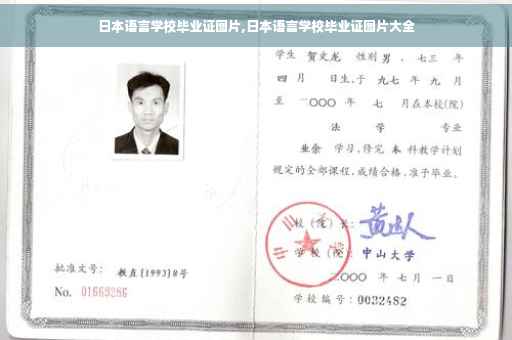 日本语言学校毕业证图片,日本语言学校毕业证图片大全
学生 贺文龙 性别 男 、七三 年
四 月 日生,于 九七 年 九 月
至 二〇〇〇 年 七 月在本校(院)
法 学 专业
业余 学习,修完 本 科教学计划
规定的全部课程,成绩合格,准予毕业。
校(院)长:
学校(院): 中山大学
二〇〇〇 年 七 月 一 日
学校编号: 0032482
批准文号: 教直[1993]8号
No. 01669286